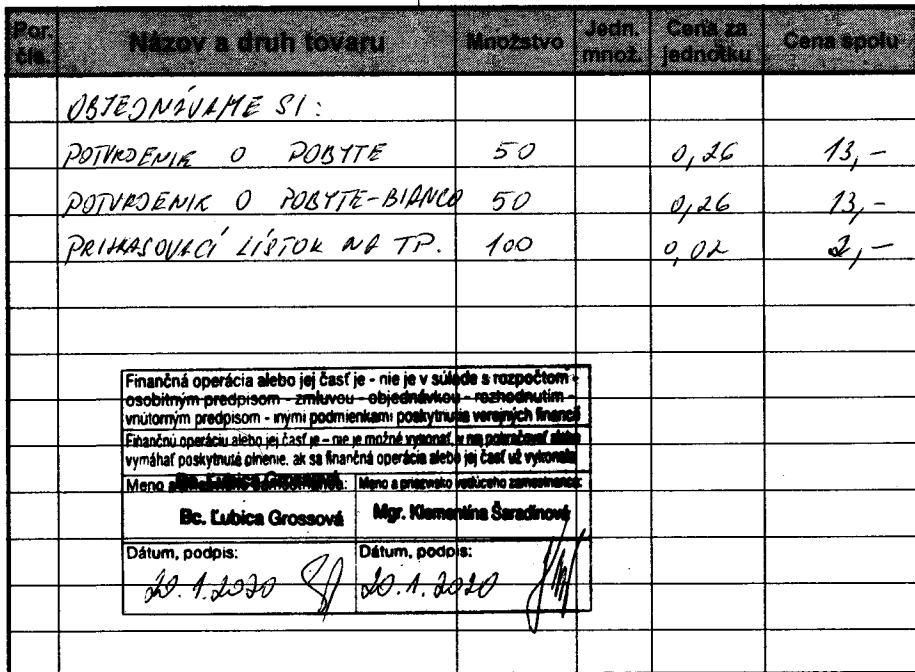 Por. čís. Názov a druh tovaru Množstvo Jedn. množ. Cena za jednotku Cena spolu
OBJEDNÁVAME SI:
POTVRDENIE O POBYTE 50 0,26 13,-
POTVRDENIE O POBYTE-BIANCO 50 0,26 13,-
PRIHLASOVACÍ LÍSTOK NA TP. 100 0,02 2,-
Finančná operácia alebo jej časť je - nie je v súlade s rozpočtom -
osobitným predpisom - zmluvou - objednávkou - rozhodnutím -
vnútorným predpisom - inými podmienkami poskytnutia verejných financií
Finančnú operáciu alebo jej časť je – nie je možné vykonať, v nej pokračovať alebo
vymáhať poskytnuté plnenie, ak sa finančná operácia alebo jej časť už vykonala
Meno a Meno a priezvisko vedúceho zamestnanca:
Bc. Ľubica Grossová Mgr. Klementína Šaradínová
Dátum, podpis: Dátum, podpis:
20.1.2020 20.1.2020